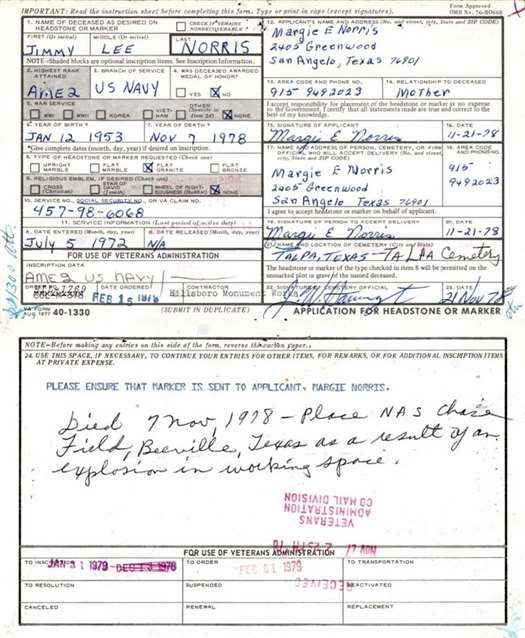 IMPORTANT: Read the instruction sheet before completing this form. Type or print in caps (except signatures).
Form Approved
OMB No. 76-R0608
1. NAME OF DECEASED AS DESIRED ON HEADSTONE OR MARKER
CHECK IF REMARKS NONSEGREGATED
FIRST (Or initial) MIDDLE (Or initial) LAST
JIMMY LEE NORRIS
NOTE - Shaded blocks are optional inscription items. See Inscription Information.
2. HIGHEST RANK ATTAINED
AME 2
3. BRANCH OF SERVICE
US NAVY
4. WAS DECEASED AWARDED MEDAL OF HONOR?
YES NO
5. WAR SERVICE
WWI WWII KOREA VIET-NAM OTHER (Identify in Item 24) NONE
6. YEAR OF BIRTH *
JAN 12 1953
7. YEAR OF DEATH *
NOV 7 1978
*Give complete dates (month, day, year) if desired on inscription.
8. TYPE OF HEADSTONE OR MARKER REQUESTED (Check one)
UPRIGHT MARBLE FLAT MARBLE FLAT GRANITE FLAT BRONZE
9. RELIGIOUS EMBLEM, IF DESIRED (Check one)
CROSS (Christian) STAR OF DAVID (Jewish) WHEEL OF RIGHTEOUSNESS (Buddhist) NONE
10. SERVICE NO., SOCIAL SECURITY NO., OR VA CLAIM NO.
457-98-6068
11. SERVICE INFORMATION (Last period of active duty)
A. DATE ENTERED (Month, day, year)
July 5 1972
B. DATE RELEASED (Month, day, year)
N/A
FOR USE OF VETERANS ADMINISTRATION
INSCRIPTION DATA
AME 2 US NAVY
ORDER NO. DATE ORDERED CONTRACTOR
FEB 15 1979 Hillsboro Monument Works
12. APPLICANT'S NAME AND ADDRESS (No. and street, city, State and ZIP CODE)
Margie E Norris
2405 Greenwood
San Angelo, Texas 76901
13. AREA CODE AND PHONE NO.
915 9492023
14. RELATIONSHIP TO DECEASED
Mother
I accept responsibility for placement of the headstone or marker at no expense to the Government. I certify that all statements made are true and correct to the best of my knowledge.
15. SIGNATURE OF APPLICANT
Margie E Norris
16. DATE
11-21-78
17. NAME AND ADDRESS OF PERSON, CEMETERY, OR FIRM OFFICIAL WHO WILL ACCEPT DELIVERY (No. and street, city, State and ZIP CODE)
Margie E Norris
2405 Greenwood
San Angelo Texas 76901
18. AREA CODE AND PHONE NO.
915
9492023
I agree to accept headstone or marker on behalf of applicant.
19. SIGNATURE OF PERSON TO ACCEPT DELIVERY
Margie E Norris
20. DATE
11-21-78
21. NAME AND LOCATION OF CEMETERY (City and State)
TALPA, TEXAS - TALPA Cemetery
The headstone or marker of the type checked in item 8 will be permitted on the unmarked plot or grave of the named deceased.
22. SIGNATURE OF CEMETERY OFFICIAL
23. DATE
21 Nov 78
VA FORM AUG 1977 40-1330 (SUBMIT IN DUPLICATE) APPLICATION FOR HEADSTONE OR MARKER
NOTE - Before making any entries on this side of the form, reverse the carbon paper.
24. USE THIS SPACE, IF NECESSARY, TO CONTINUE YOUR ENTRIES FOR OTHER ITEMS, FOR REMARKS, OR FOR ADDITIONAL INSCRIPTION ITEMS AT PRIVATE EXPENSE.
PLEASE ENSURE THAT MARKER IS SENT TO APPLICANT, MARGIE NORRIS.
Died 7 Nov, 1978 - Place NAS Chase
Field, Beeville, Texas as a result of an
explosion in working space.
VETERANS
ADMINISTRATION
CO MAIL DIVISION
FOR USE OF VETERANS ADMINISTRATION
TO INSCRIPTION JAN 31 1979 DEC 13 1978
TO ORDER FEB 01 1979
TO TRANSPORTATION
TO RESOLUTION SUSPENDED RECEIVED REACTIVATED
CANCELED RENEWAL REPLACEMENT